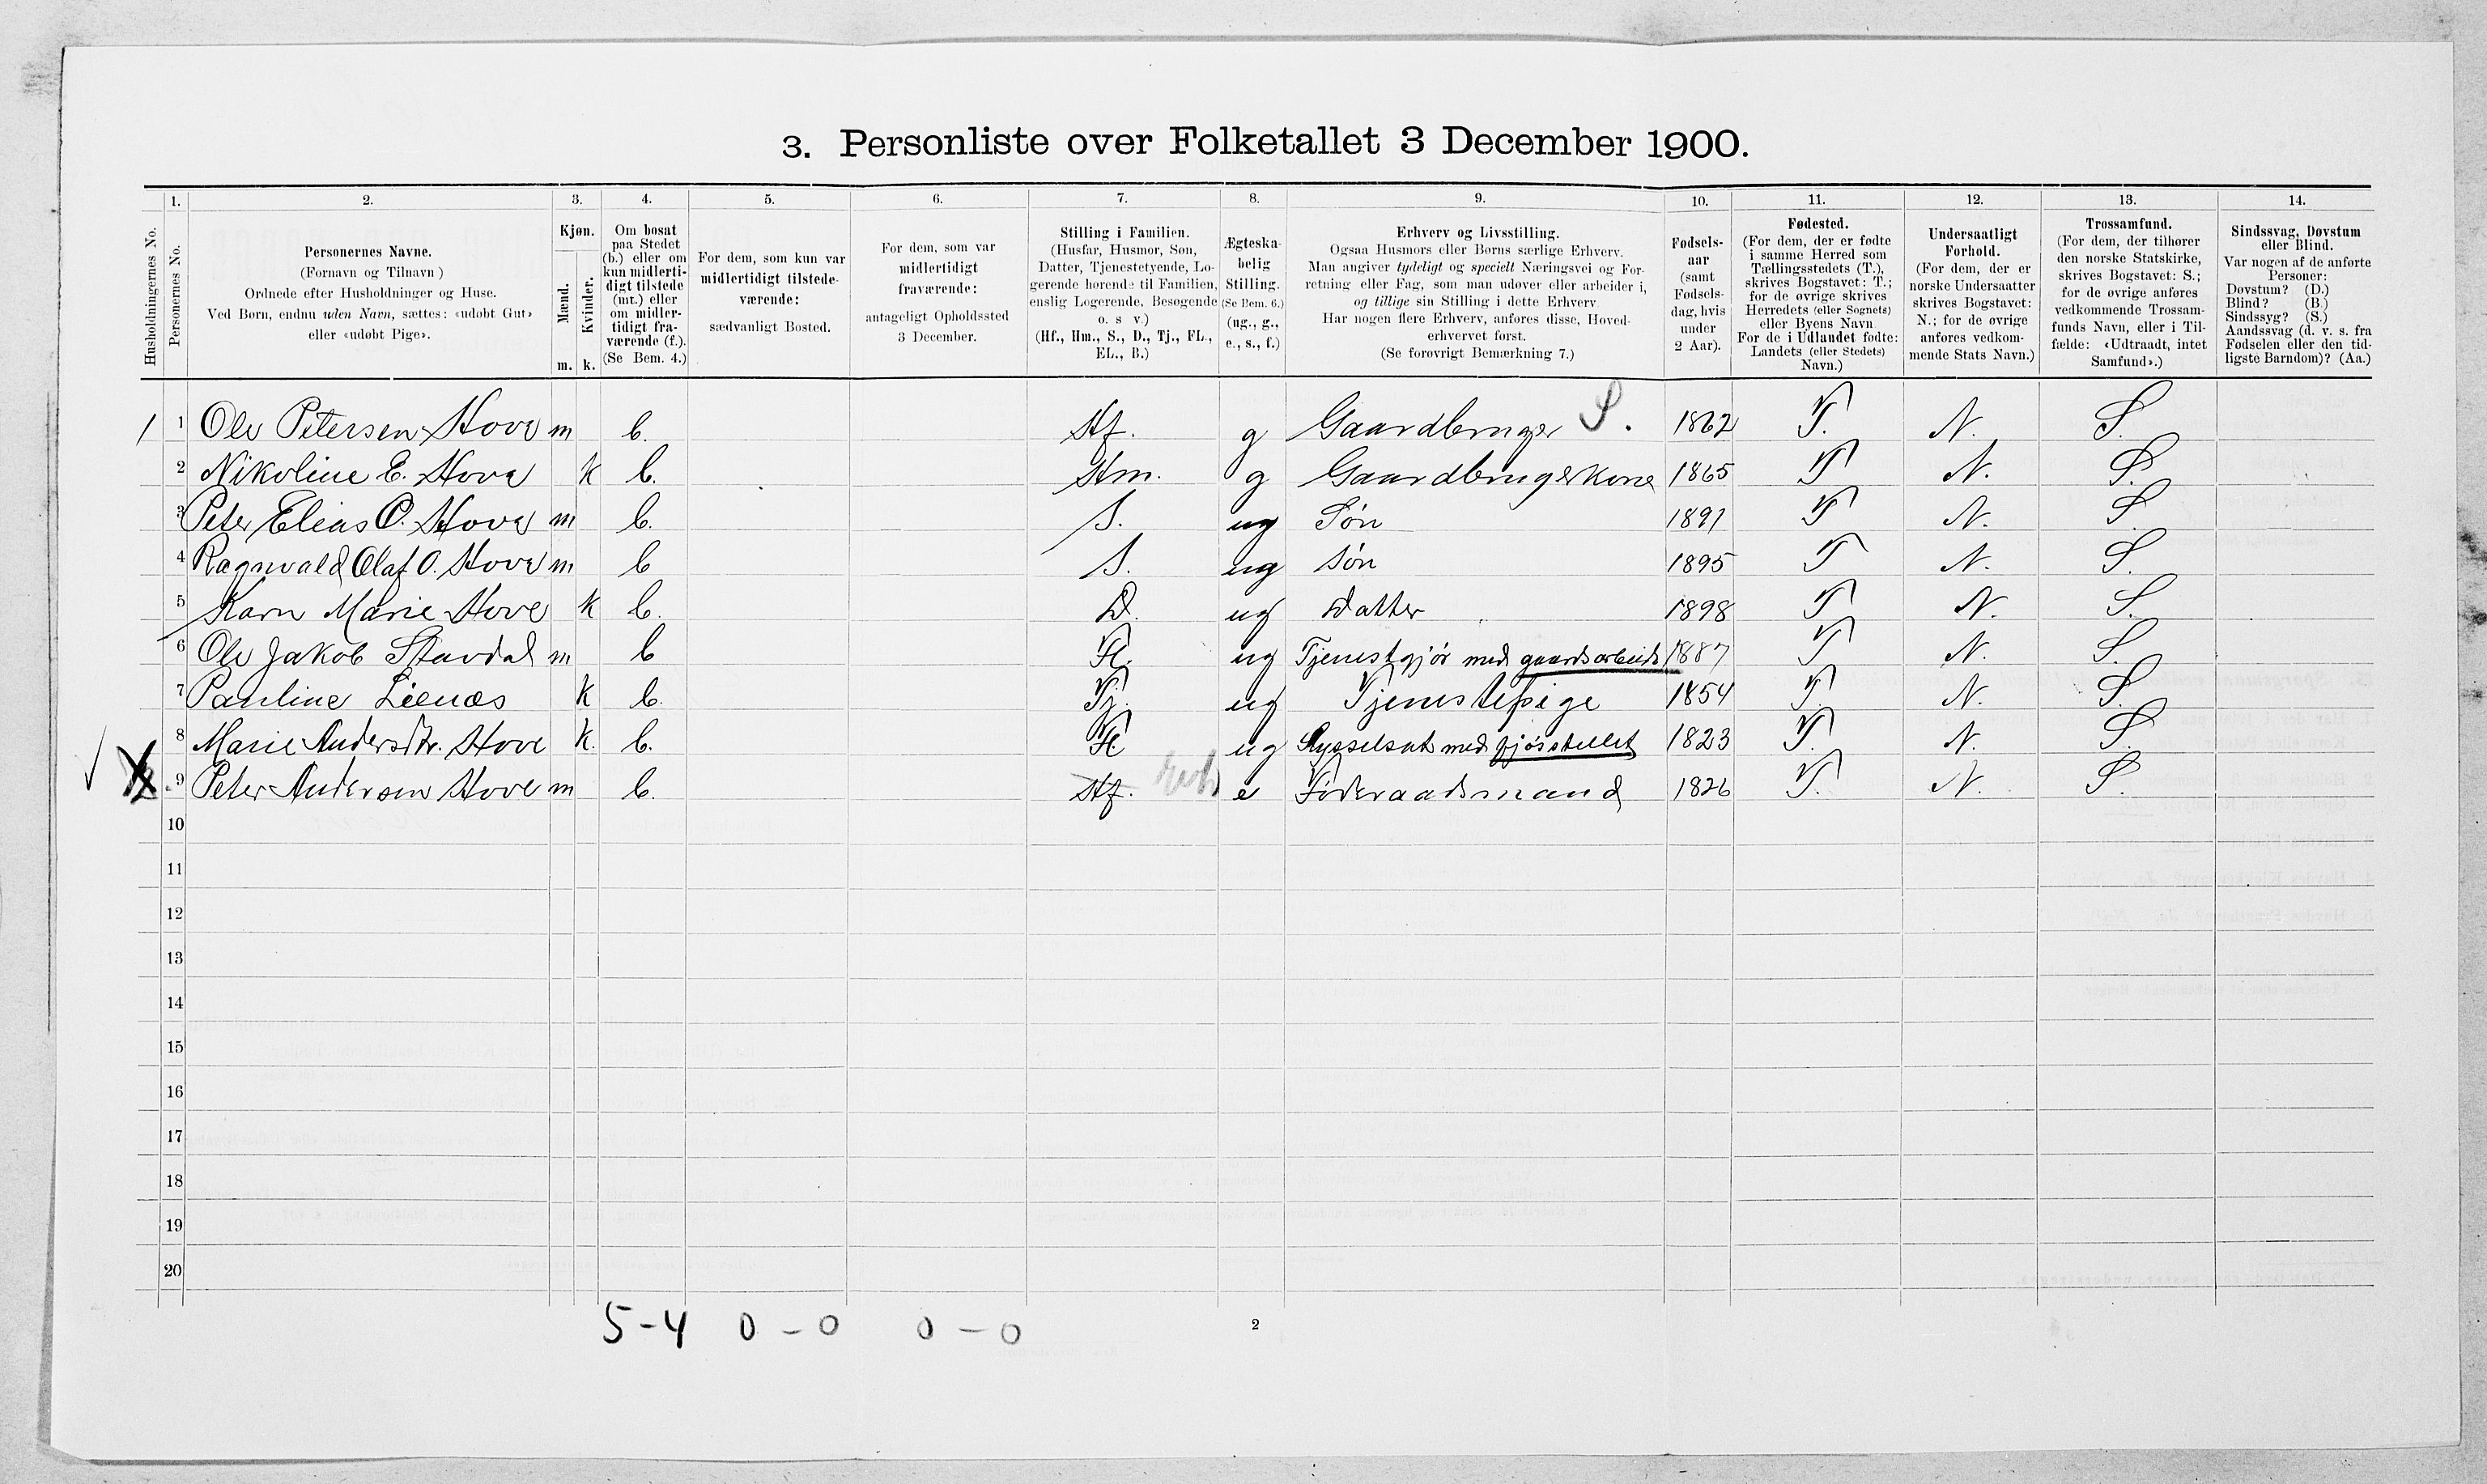 3. Personliste over Folketallet 3 December 1900.
Husholdningernes No.
1.
Personernes No.
2.
Personernes Navne.
(Fornavn og Tilnavn)
Ordnede efter Husholdninger og Huse.
Ved Børn, endnu uden Navn, sættes: «udøbt Gut»
eller «udøbt Pige».
3.
Kjøn.
Mænd.
Kvinder.
m. k.
4.
Om bosat
paa Stedet
(b.) eller om
kun midlerti-
digt tilstede
(mt.) eller
om midler-
tidigt fra-
værende (f.).
(Se Bem. 4.)
5.
For dem, som kun var
midlertidigt tilstede-
værende:
sædvanligt Bosted.
6.
For dem, som var
midlertidigt
fraværende:
antageligt Opholdssted
3 December.
7.
Stilling i Familien.
(Husfar, Husmor, Søn,
Datter, Tjenestetyende, Lo-
gerende hørende til Familien,
enslig Logerende, Besøgende
o. s v.)
(Hf., Hm., S., D., Tj., FL.,
EL., B.)
8.
Ægteska-
belig
Stilling.
(Se Bem. 6.)
(ug., g.,
e., s., f.)
9.
Erhverv og Livsstilling.
Ogsaa Husmors eller Børns særlige Erhverv.
Man angiver tydeligt og specielt Næringsvei og For-
retning eller Fag, som man udøver eller arbeider i,
og tillige sin Stilling i dette Erhverv.
Har nogen flere Erhverv, anføres disse, Hoved-
erhvervet først.
(Se forøvrigt Bemærkning 7.)
10.
Fødsels-
aar
(samt
Fødsels-
dag, hvis
under
2 Aar).
11.
Fødested.
(For dem, der er fødte
i samme Herred som
Tællingsstedets (T.),
skrives Bogstavet: T.;
for de øvrige skrives
Herredets (eller Sognets)
eller Byens Navn
For de i Udlandet fødte:
Landets (eller Stedets)
Navn.)
12.
Undersaatligt
Forhold.
(For dem, der er
norske Undersaatter
skrives Bogstavet:
N.; for de øvrige
anføres vedkom-
mende Stats Navn.)
13.
Trossamfund.
(For dem, der tilhører
den norske Statskirke,
skrives Bogstavet: S.;
for de øvrige anføres
vedkommende Trossam-
funds Navn, eller i Til-
fælde: «Udtraadt, intet
Samfund».)
14.
Sindssvag, Døvstum
eller Blind.
Var nogen af de anførte
Personer:
Døvstum? (D.)
Blind? (B.)
Sindssyg? (S.)
Aandssvag (d. v. s. fra
Fødselen eller den tid-
ligste Barndom)? (Aa.)
1 1 Ole Petersen Hove m b. Hf. g Gaardbruger S. 1862 T. N. S.
2 Nikoline E. Hove k b. Hm. g Gaardbrugerkone 1865 T N. S.
3 Peter Elias O. Hove m b. S. ug Søn 1891 T N. S.
4 Ragnvald Olaf O. Hove m b S. ug Søn 1895 T N. S.
5 Karn Marie Hove k b. D. ug Datter 1898 T N. S.
6 Ole Jakob Stavdal m b Fl. ug Tjenestgjør med gaardsarbeide 1887 T N. S.
7 Pauline Lienæs k b. Tj. ug Tjenestepige 1854 T. N. S.
8 Marie Andersdtr. Hove k. b. Fl ug Sysselsat med fjøsstellet 1823 T. N. S.
9 Peter Andersen Hove m b. Hf. e Føderaadsmand 1826 T. N. S.
10
11
12
13
14
15
16
17
18
19
20
5-4 0-0 0-0
2